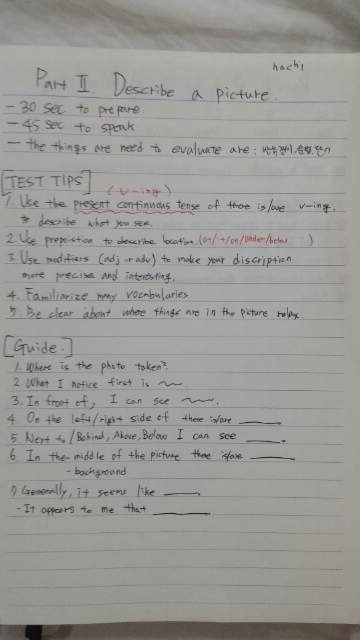 hach1
Part II. Describe a picture.
- 30 sec to prepare
- 45 sec to speak
- the things are need to evaluate are :
[TEST TIPS]
(v-ing)
1. Use the present continuous tense of there is/are v-ing.
to describe what you see.
2. Use prepostion to describe location. (at/in/on/under/below )
3. Use modifiers (adj or adv) to make your discription
more precise and interesting.
4. Familiarize many vocabularies
5. Be clear about where things are in the picture relax.
[Guide.]
1. Where is the photo taken?
2. What I notice first is ~
3. In front of, I can see ~.
4. On the left/right side of there is/are ____
5. Next to / Behind, Above, Below I can see ____.
6. In the middle of the picture there is/are ____
- background
7. Generally, it seems like ____.
- It appears to me that ____